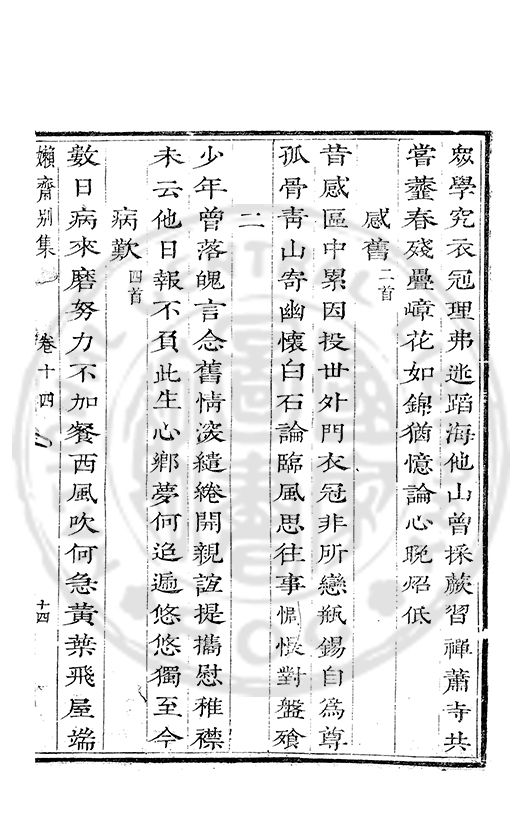 眾學究衣冠理弗逃蹈海他山曾採蕨習禪蕭寺共
嘗虀春殘疊嶂花如錦猶憶論心晚炤低
感舊二首
昔感區中累因投世外門衣冠非所戀瓶錫自為尊
孤骨靑山寄幽懷白石論臨風思往事惆悵對盤飧
二
少年曾落魄言念舊情深繾綣開親誼提攜慰稚襟
未云他日報不負此生心鄉夢何迢遞悠悠獨至今
病歎四首
數日病來磨努力不加餐西風吹何急黃葉飛屋端
嬾齋別集
卷十四
十四